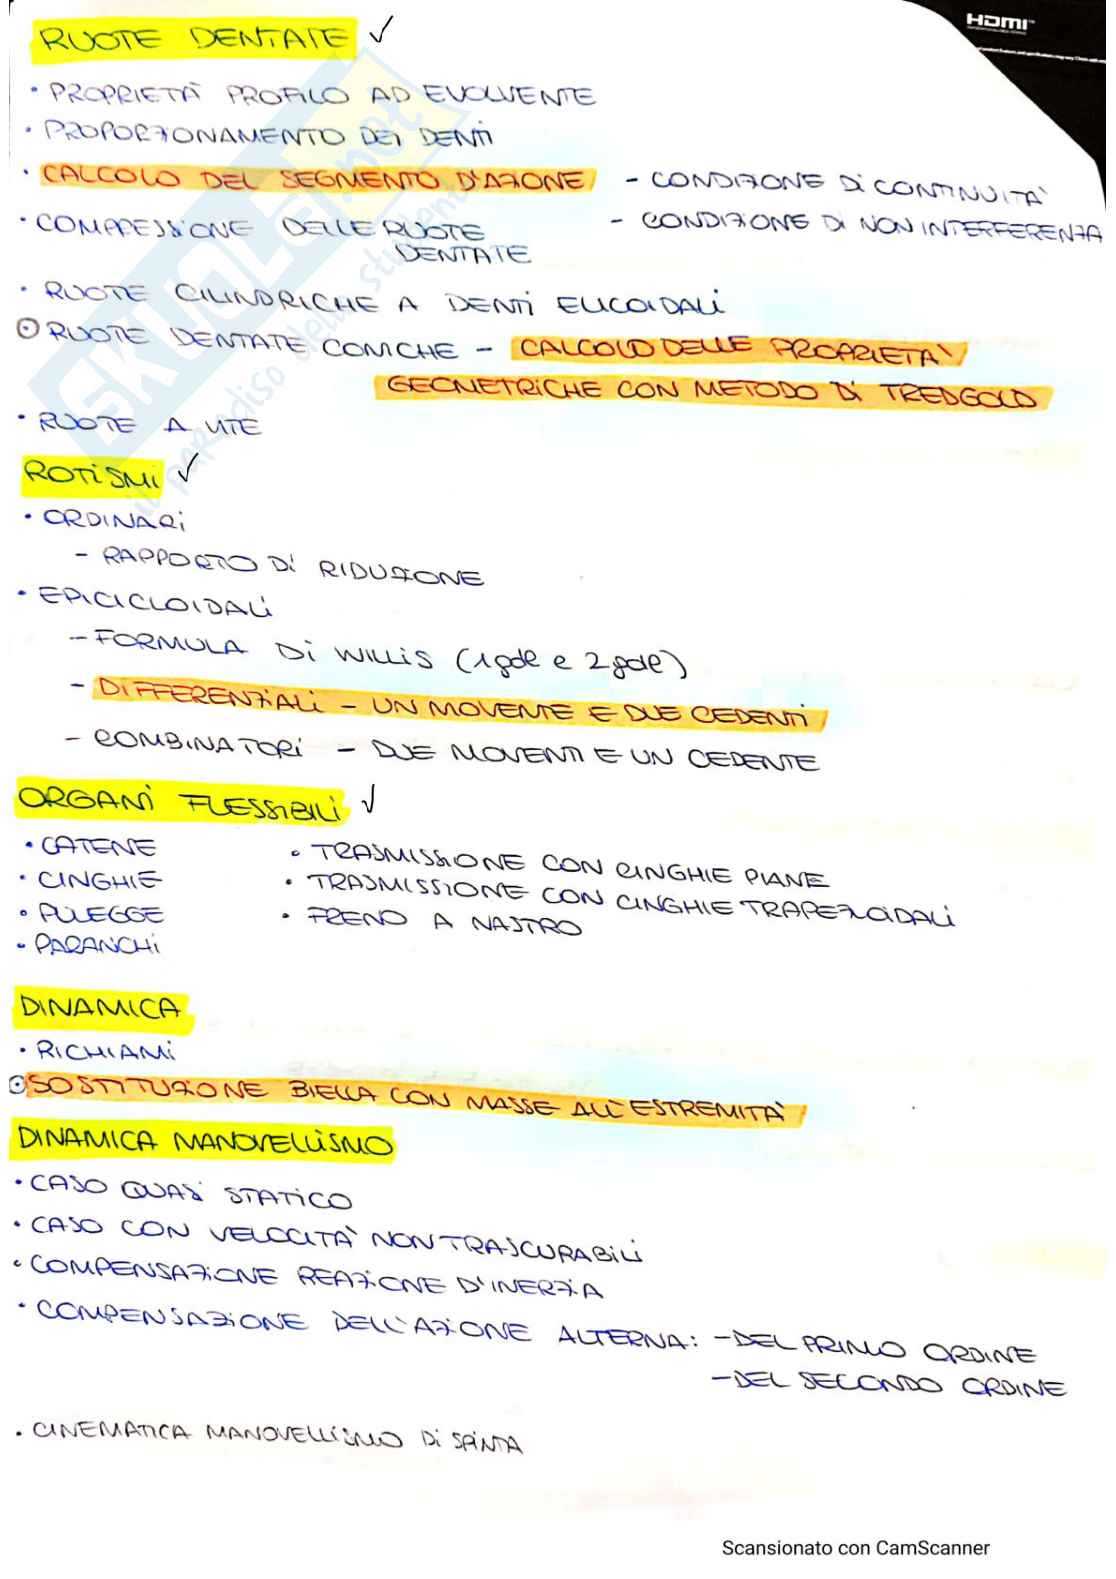 HDMI
RUOTE DENTATE ✓
• PROPRIETÀ PROFILO AD EVOLVENTE
• PROPORZIONAMENTO DEI DENTI
• CALCOLO DEL SEGMENTO D'AZIONE - CONDIZIONE DI CONTINUITA'
- CONDIZIONE DI NON INTERFERENZA
• COMPRESSIONE DELLE RUOTE DENTATE
• RUOTE CILINDRICHE A DENTI ELICOIDALI
⊙ RUOTE DENTATE CONICHE - CALCOLO DELLE PROPRIETA'
GEOMETRICHE CON METODO DI TREDGOLD
• RUOTE A VITE
ROTISMI ✓
• ORDINARI
- RAPPORTO DI RIDUZIONE
• EPICICLOIDALI
- FORMULA DI WILLIS (1gdl e 2gdl)
- DIFFERENZIALI - UN MOVENTE E DUE CEDENTI
- COMBINATORI - DUE MOVENTI E UN CEDENTE
ORGANI FLESSIBILI ✓
• CATENE
• CINGHIE
• PULEGGE
• PARANCHI
• TRASMISSIONE CON CINGHIE PIANE
• TRASMISSIONE CON CINGHIE TRAPEZOIDALI
• FRENO A NASTRO
DINAMICA
• RICHIAMI
⊙ SOSTITUZIONE BIELLA CON MASSE ALL'ESTREMITÀ
DINAMICA MANOVELLISMO
• CASO QUASI STATICO
• CASO CON VELOCITA' NON TRASCURABILI
• COMPENSAZIONE REAZIONE D'INERZIA
• COMPENSAZIONE DELL'AZIONE ALTERNA: - DEL PRIMO ORDINE
- DEL SECONDO ORDINE
• CINEMATICA MANOVELLISMO DI SPINTA
SKUOLA.net
il paradiso dello studente
Scansionato con CamScanner